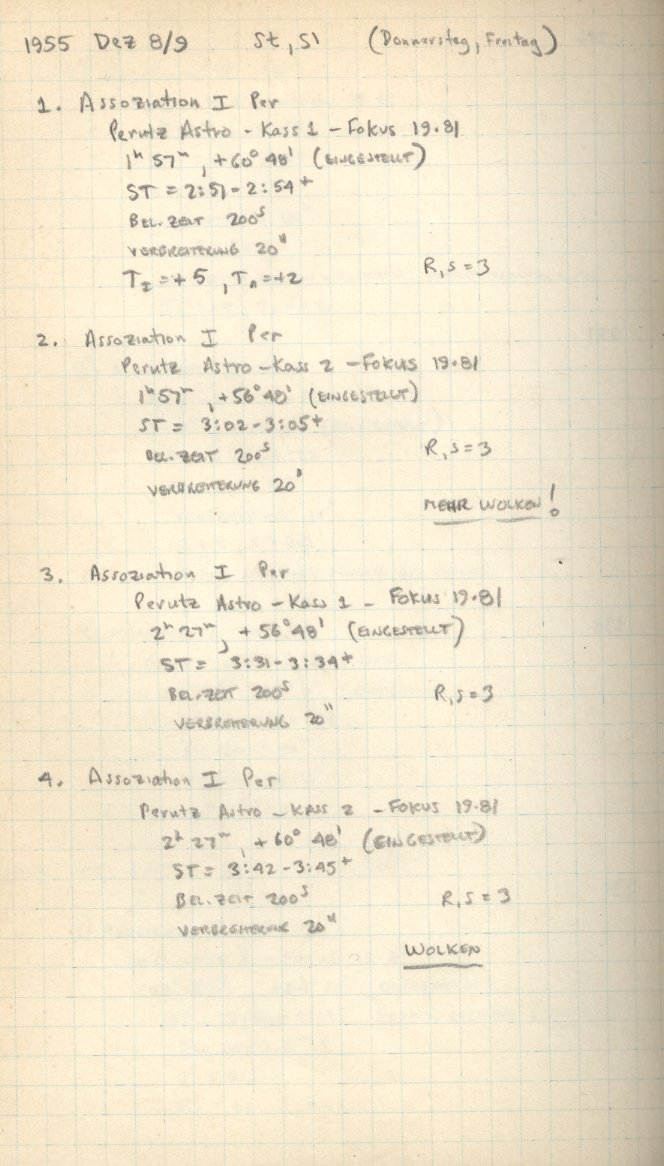 1955 Dez 8/9 St, Sl (Donnerstag, Freitag)
1. Assoziation I Per
Perutz Astro - Kass 1 - Fokus 19.81
1ʰ 57ᵐ, +60° 48' (EINGESTELLT)
ST = 2:51 - 2:54⁺
BEL. ZEIT 200ˢ
VERBREITERUNG 20"
T_I = +5, T_A = +2 R, S = 3
2. Assoziation I Per
Perutz Astro - Kass 2 - Fokus 19.81
1ʰ 57ᵐ, +56° 48' (EINGESTELLT)
ST = 3:02 - 3:05⁺
BEL. ZEIT 200ˢ R, S = 3
VERBREITERUNG 20"
MEHR WOLKEN!
3. Assoziation I Per
Perutz Astro - Kass 1 - Fokus 19.81
2ʰ 27ᵐ, +56° 48' (EINGESTELLT)
ST = 3:31 - 3:34⁺
BEL. ZEIT 200ˢ R, S = 3
VERBREITERUNG 20"
4. Assoziation I Per
Perutz Astro - KASS 2 - FOKUS 19.81
2ʰ 27ᵐ, +60° 48' (EINGESTELLT)
ST = 3:42 - 3:45⁺
BEL. ZEIT 200ˢ R, S = 3
VERBREITERUNG 20"
WOLKEN